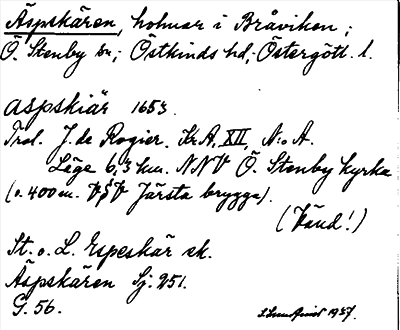 Äspskären, holmar i Bråviken;
Ö. Stenby sn; Östkinds hd, Östergötl. l.
aspskiär 1653
Trol. J. de Rogier. Kr.A, XII, N:o A.
Läge 6,3 km. NNV Ö. Stenby kyrka
(o. 400 m. VSV Järsta brygga).
(Vänd!)
St. o. L. Espeskär sk.
Äspskären Sj. 251.
G. 56.
1937.